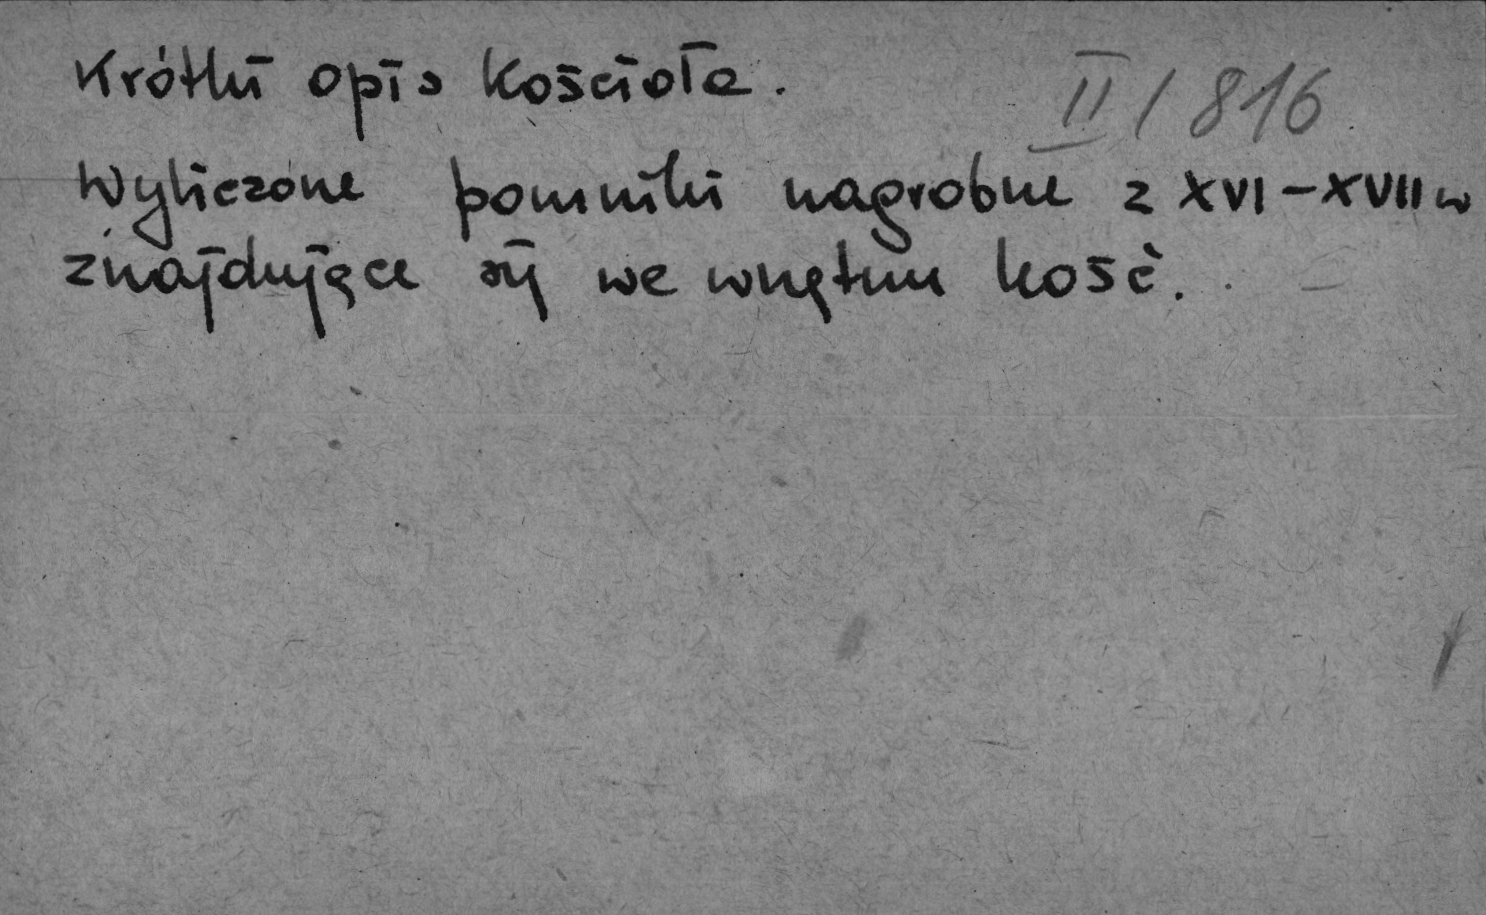 Krótki opis kościoła.
II / 816
Wyliczone pomniki nagrobne z XVI-XVII w
znajdujące się we wnętrzu kość.